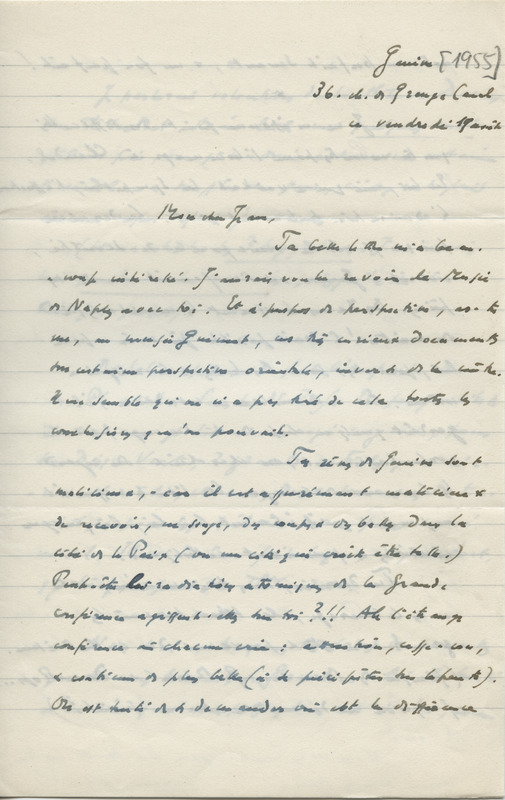 Genève [1955]
36. ch. de Grange Canal
ce vendredi 19 août
Mon cher Jean,
Ta belle lettre m'a beau-
-coup intéressé. J'aurais voulu revoir le Musée
de Naples avec toi. Et à propos de perspective, as-tu
vu, au musée Guimet, ces très curieux documents
sur certaine perspective orientale, inverse de la nôtre.
Il me semble qu'on n'a pas tiré de cela toutes les
conclusions qu'on pouvait.
Tes rêves de Genève sont
malicieux, - car il est apparemment malicieux
de recevoir, en songe, des coups de dans la
cité de la Paix (ou une cité qui croit être telle.)
Peut-être les radiations atomiques de la Grande
conférence agissent-elles sur toi ?!! Ah l'étrange
conférence où chacun crie : attention, casse-cou,
& continue de plus belle (à se précipiter sur la pente).
On est tenté de se demander où est la différence